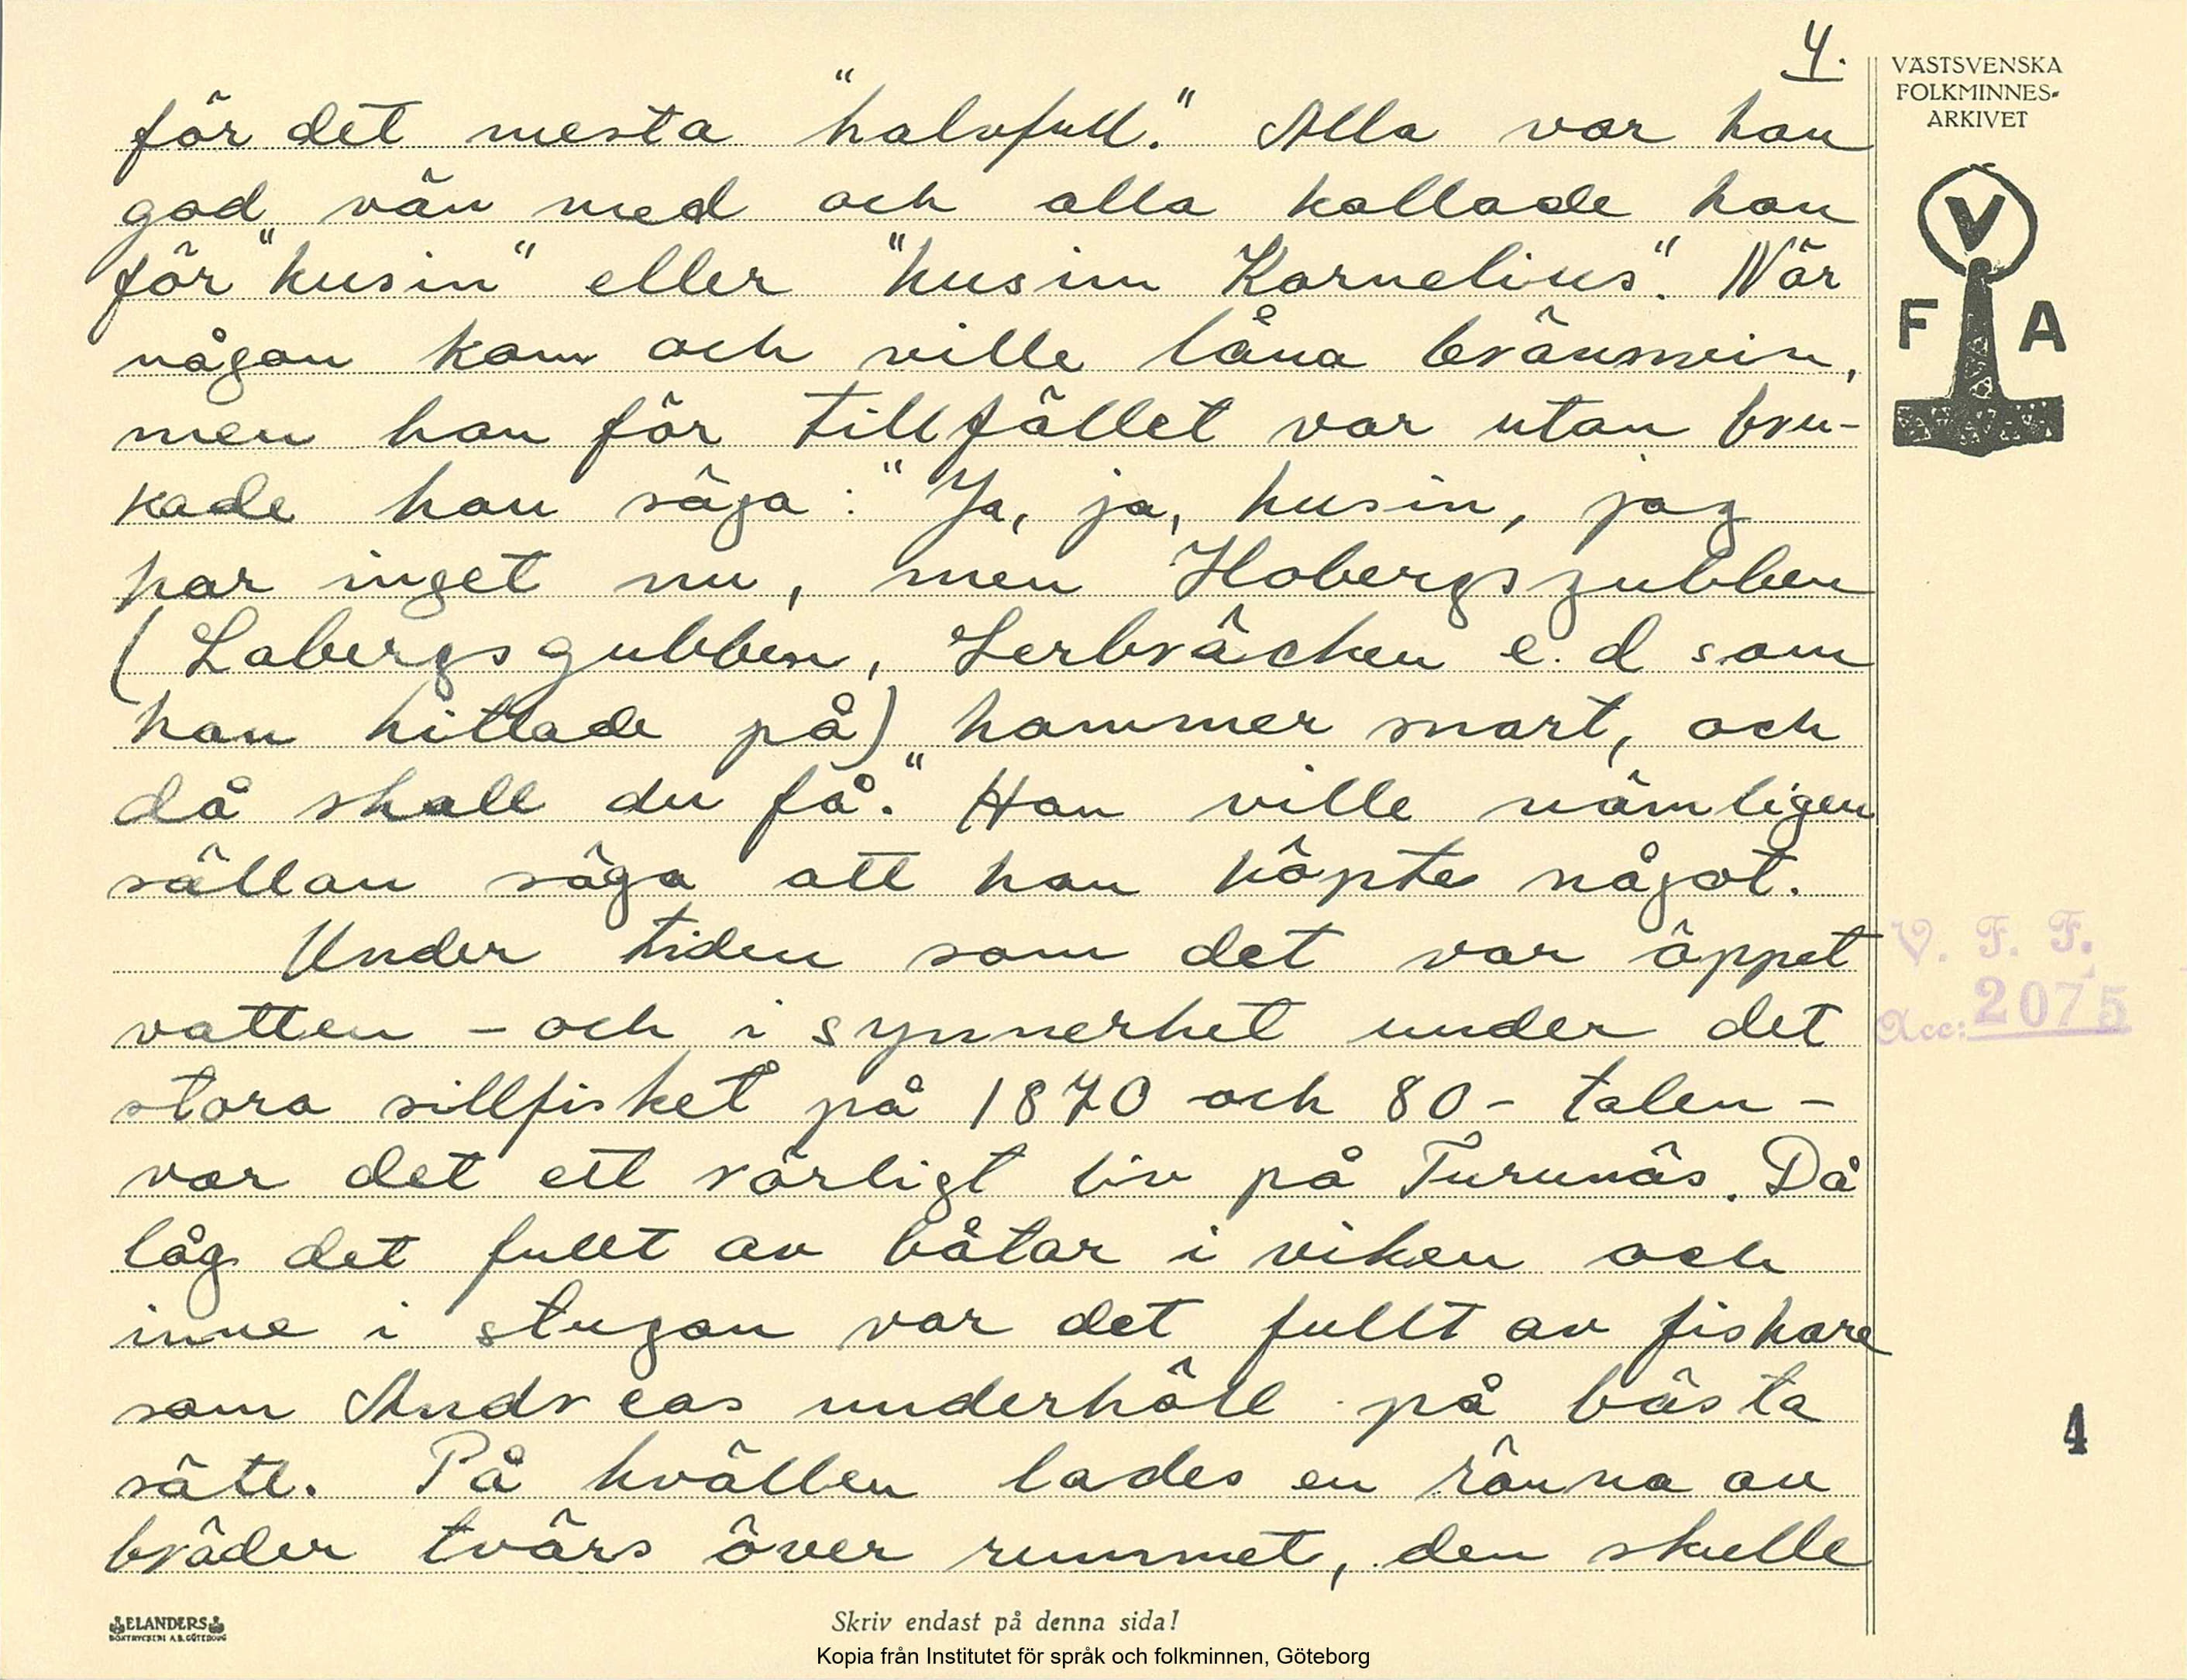 4.
för det mesta "halvfull." Alla var han
god vän med och alla kallade han
för "kusin" eller "kusin Kornelius". När
någon kom och ville låna brännvin,
men han för tillfället var utan bru-
kade han säga: "Ja, ja, kusin, jag
har inget nu, men Hobergsgubben
(Labergsgubben, Lerbräcken e. d som
han hittade på) kommer snart, och
då skall du få." Han ville nämligen
sällan säga att han köpte något.
Under tiden som det var öppet
vatten - och i synnerhet under det
stora sillfisket på 1870 och 80- talen -
var det ett rörligt liv på Turunäs. Då
låg det fullt av båtar i viken och
inne i stugan var det fullt av fiskare
som Andreas underhöll på bästa
sätt. På kvällen lades en ränna av
bräder tvärs över rummet, den skulle
VÄSTSVENSKA
FOLKMINNES-
ARKIVET
V
F A
V. F. F.
Acc: 2075
4
ELANDERS
BOKTRYCKERI A.B. GÖTEBORG
Skriv endast på denna sida!
Kopia från Institutet för språk och folkminnen, Göteborg